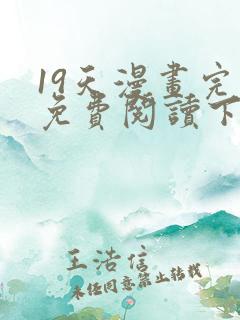 19天漫畫完
免費閱讀下
王浩信
未经同意禁止转载